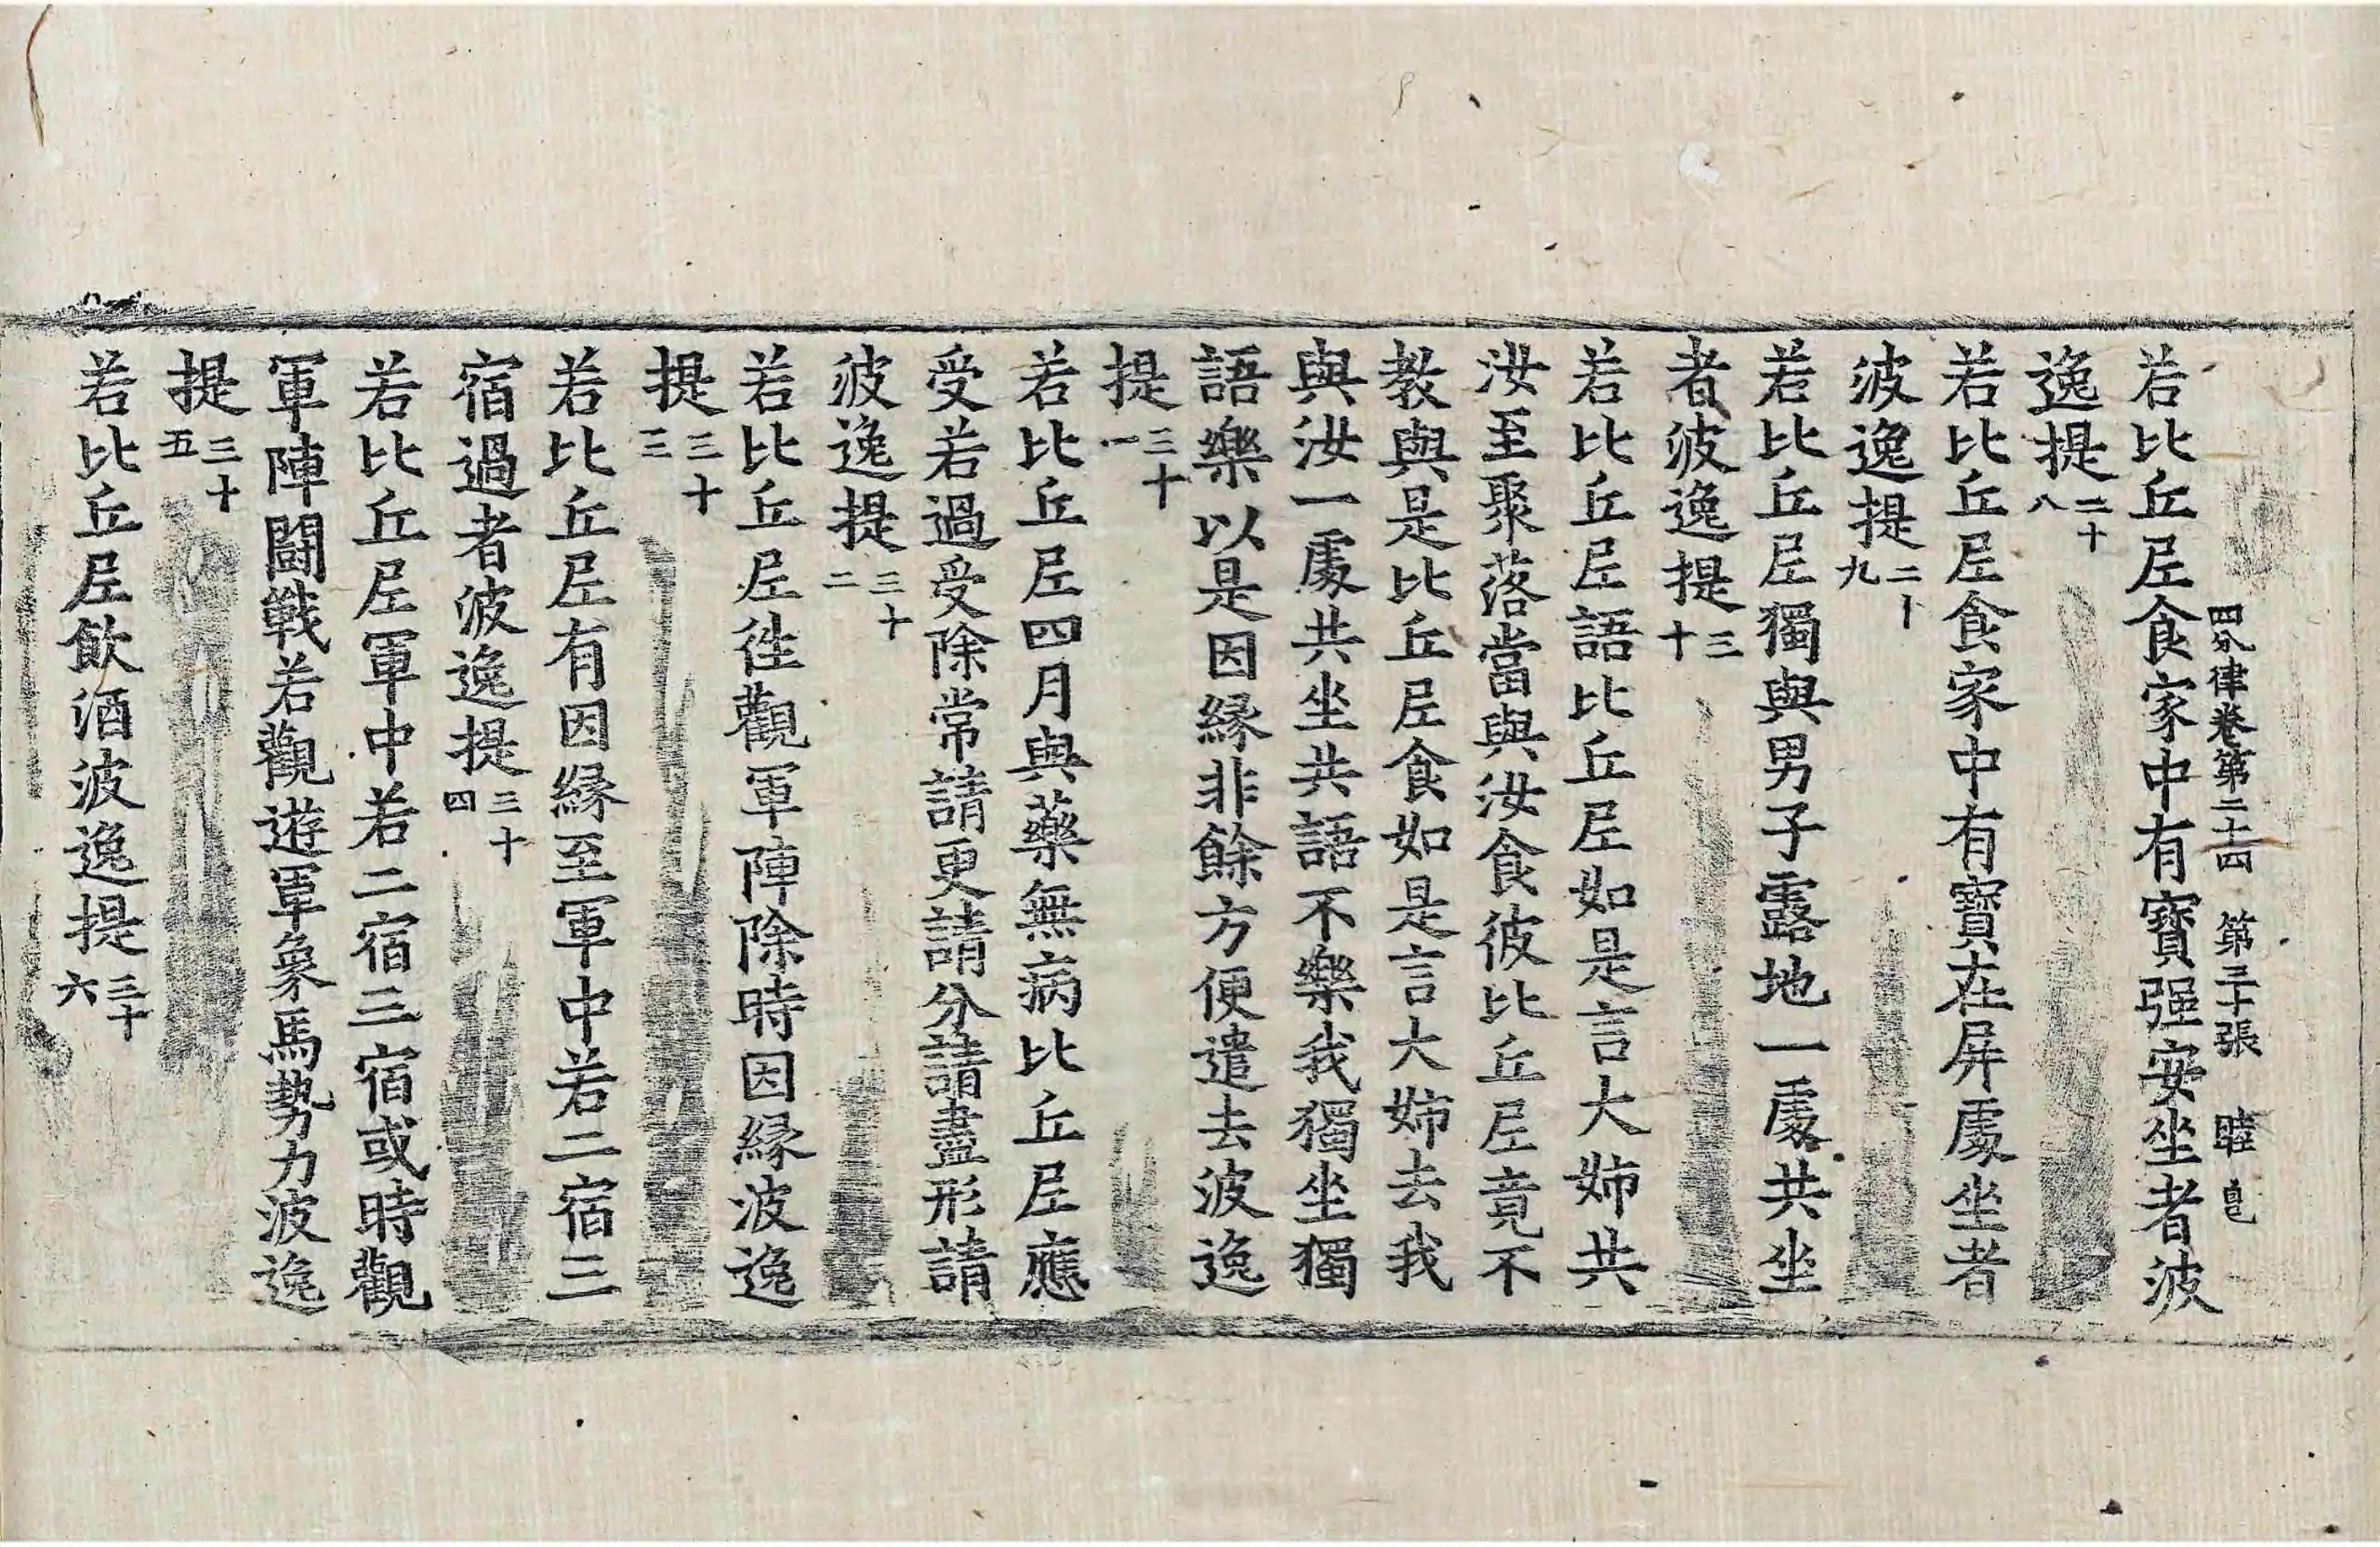 四分律卷第二十四　第三十張　睦　皀
若比丘尼食家中有寶强安坐者波
逸提二十八
若比丘尼食家中有寶在屏處坐者
波逸提二十九
若比丘尼獨與男子露地一處共坐
者波逸提三十
若比丘尼語比丘尼如是言大姉共
汝至聚落當與汝食彼比丘尼竟不
教與是比丘尼食如是言大姉去我
與汝一處共坐共語不樂我獨坐獨
語樂以是因緣非餘方便遣去波逸
提三十一
若比丘尼四月與藥無病比丘尼應
受若過受除常請更請分請盡形請
波逸提三十二
若比丘尼徃觀軍陣除時因緣波逸
提三十三
若比丘尼有因緣至軍中若二宿三
宿過者波逸提三十四
若比丘尼軍中若二宿三宿或時觀
軍陣鬪戰若觀遊軍象馬勢力波逸
提三十五
若比丘尼飮酒波逸提三十六